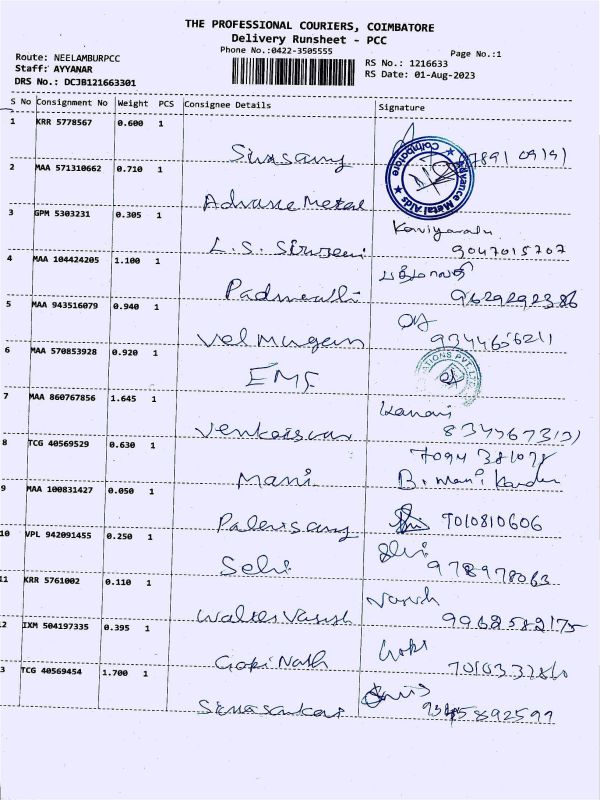 THE PROFESSIONAL COURIERS, COIMBATORE
Delivery Runsheet - PCC
Phone No.:0422-3505555
Page No.:1
Route: NEELAMBURPCC
RS No.: 1216633
Staff: AYYANAR
RS Date: 01-Aug-2023
DRS No.: DCJB121663301
S No Consignment No Weight PCS Consignee Details Signature
1 KRR 5778567 0.600 1
Sivasamy
2 MAA 571310662 0.710 1
Coimbatore ★ Advance Metal Aids ★
Advance Metal
3 GPM 5303231 0.305 1
L.S. 9047015707
4 MAA 104424205 1.100 1
பத்மாவதி
Padmavathi 9629292386
5 MAA 943516079 0.940 1
Vel Murugan 9344656211
6 MAA 570853928 0.920 1
EMF
7 MAA 860767856 1.645 1
Kannan
Venkateswar
8 TCG 40569529 0.630 1
Mani B. Mani
9 MAA 100831427 0.050 1
Palanisamy 9010810606
10 VPL 942091455 0.250 1
Selvi Selvi 978978063
11 KRR 5761002 0.110 1
Walter Vasish 9962589175
2 IXM 504197335 0.395 1
Gopi Nath Gopi
3 TCG 40569454 1.700 1
Sivasankar 9345892599